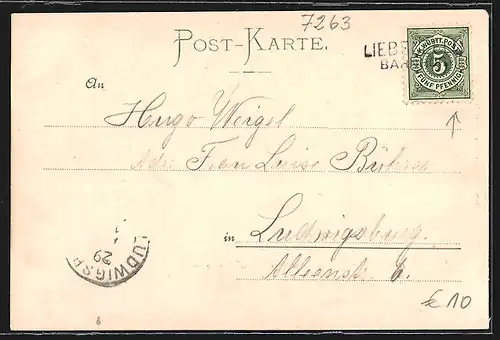 7263
POST-KARTE.
LIEB
BA
K. WÜRTT. POST
5
FÜNF PFENNIG
An
Hugo Weigel
Adr. Frau Luise Bührer
in Ludwigsburg.
Alleenstr. 6.
LUDWIGSB
29
€ 10